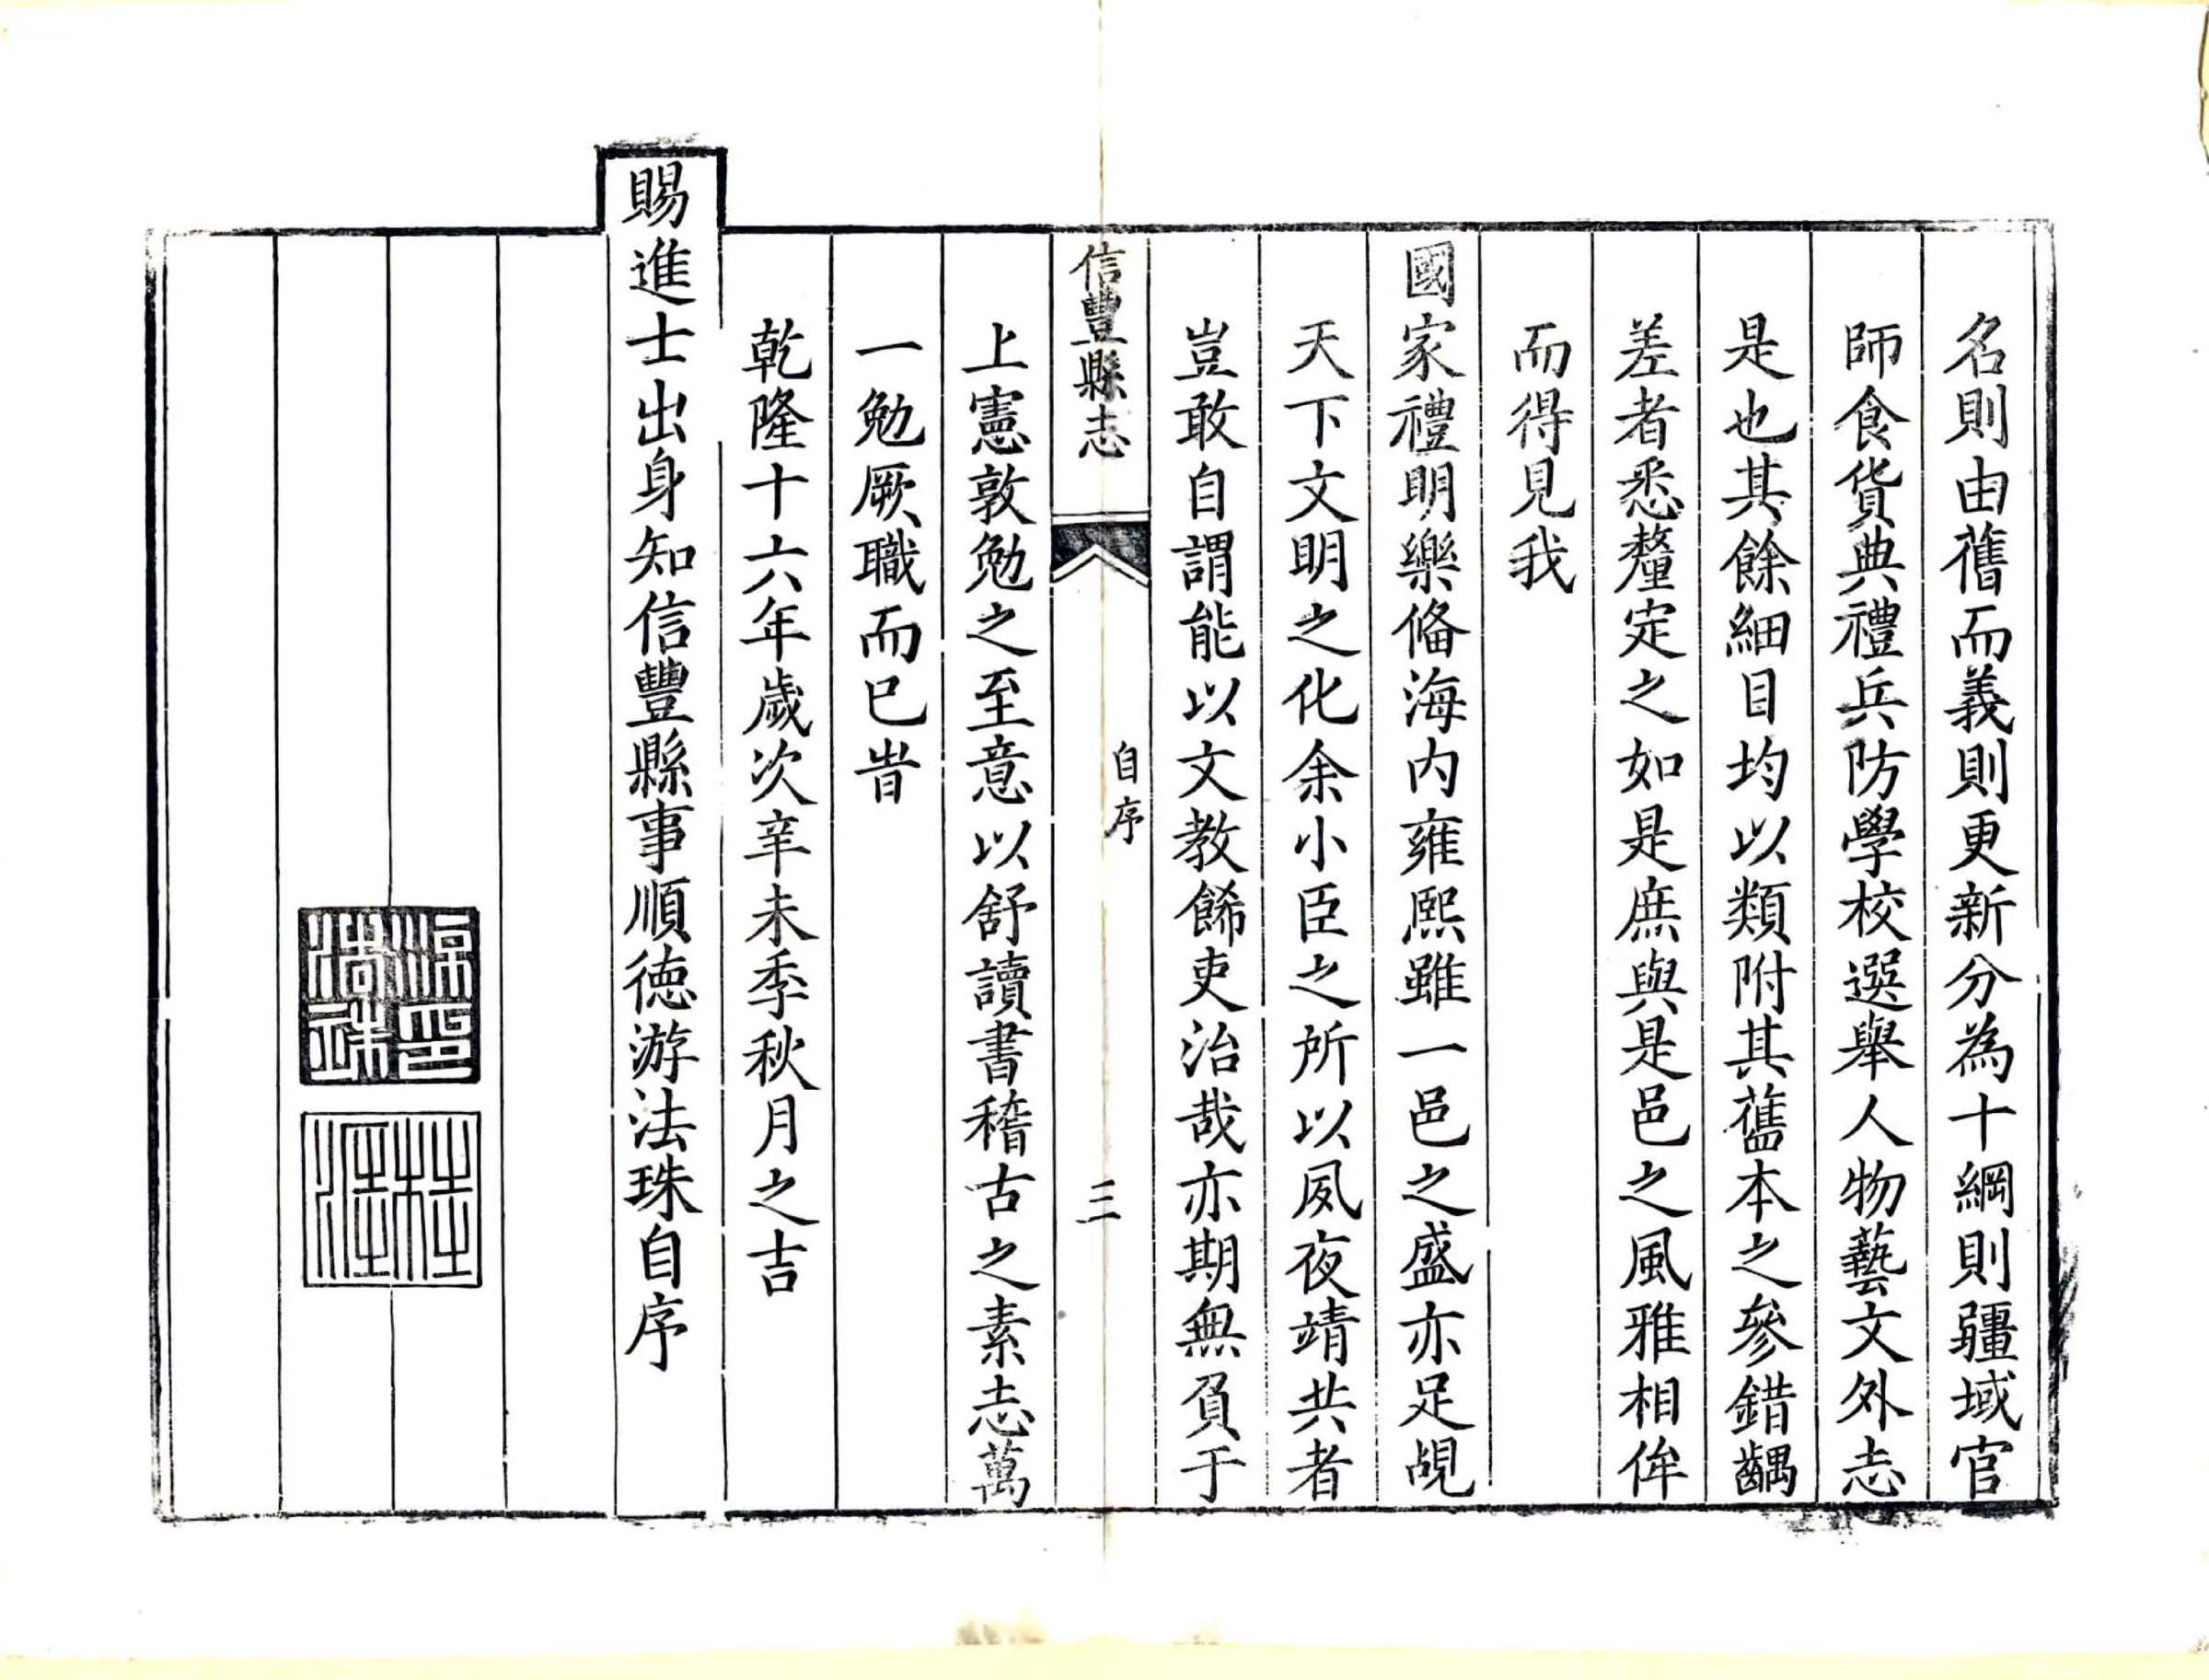 名則由舊而義則更新分為十綱則疆域官
師食貨典禮兵防學校選舉人物藝文外志
是也其餘細目均以類附其舊本之參錯齲
差者悉釐定之如是庶與是邑之風雅相侔
而得見我
國家禮明樂俻海内雍熙雖一邑之盛亦足覘
天下文明之化余小臣之所以夙夜靖共者
豈敢自謂能以文教餙吏治哉亦期無負于
信豐縣志
自序
三
上憲敦勉之至意以舒讀書稽古之素志萬
一勉厥職而已旹
乾隆十六年歲次辛未季秋月之吉
賜進士出身知信豐縣事順德游法珠自序